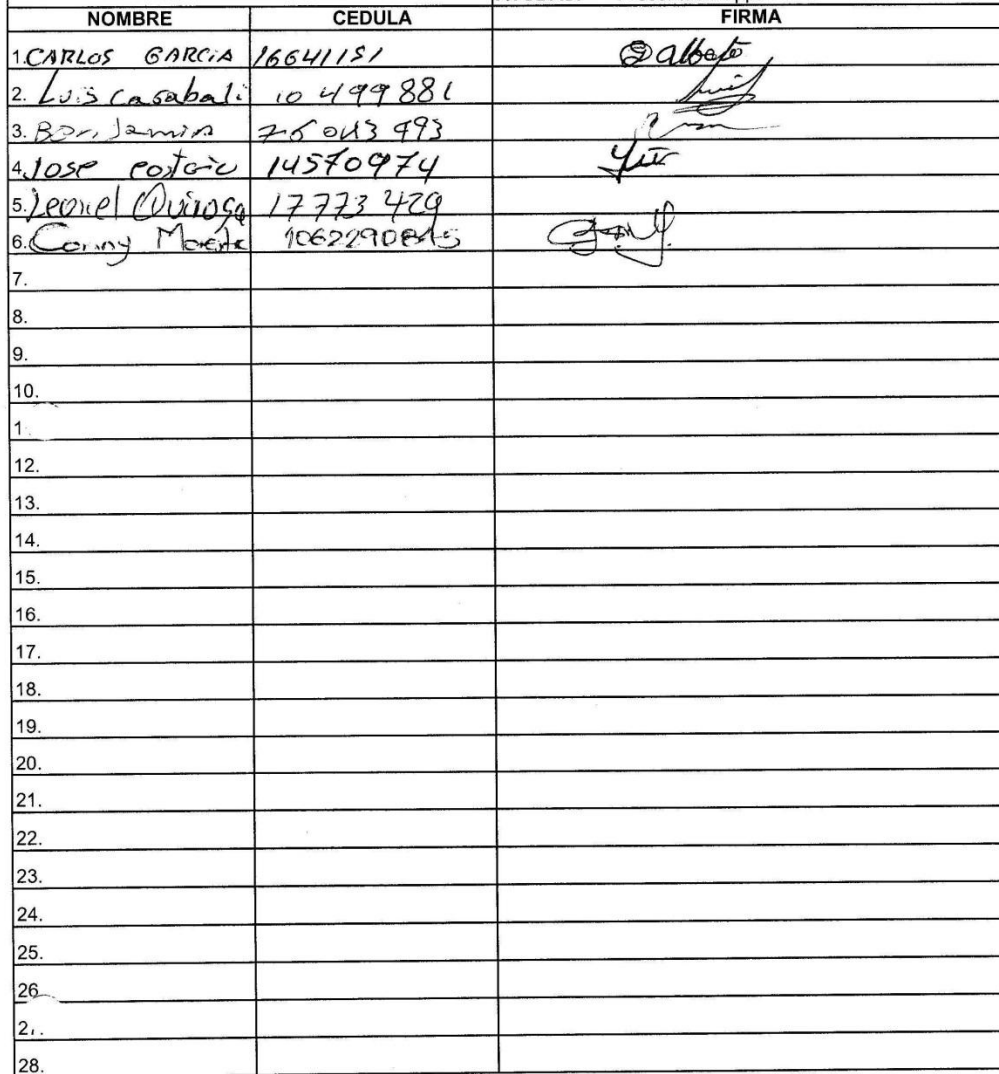 NOMBRE CEDULA FIRMA
1. CARLOS GARCIA 16641151
2. Luis Casabali 10 499 881
3. Benjamin
4. Jose 14570974
5. Leonel Quiroga 17773 429
6.
7.
8.
9.
10.
1
12.
13.
14.
15.
16.
17.
18.
19.
20.
21.
22.
23.
24.
25.
26
2.
28.